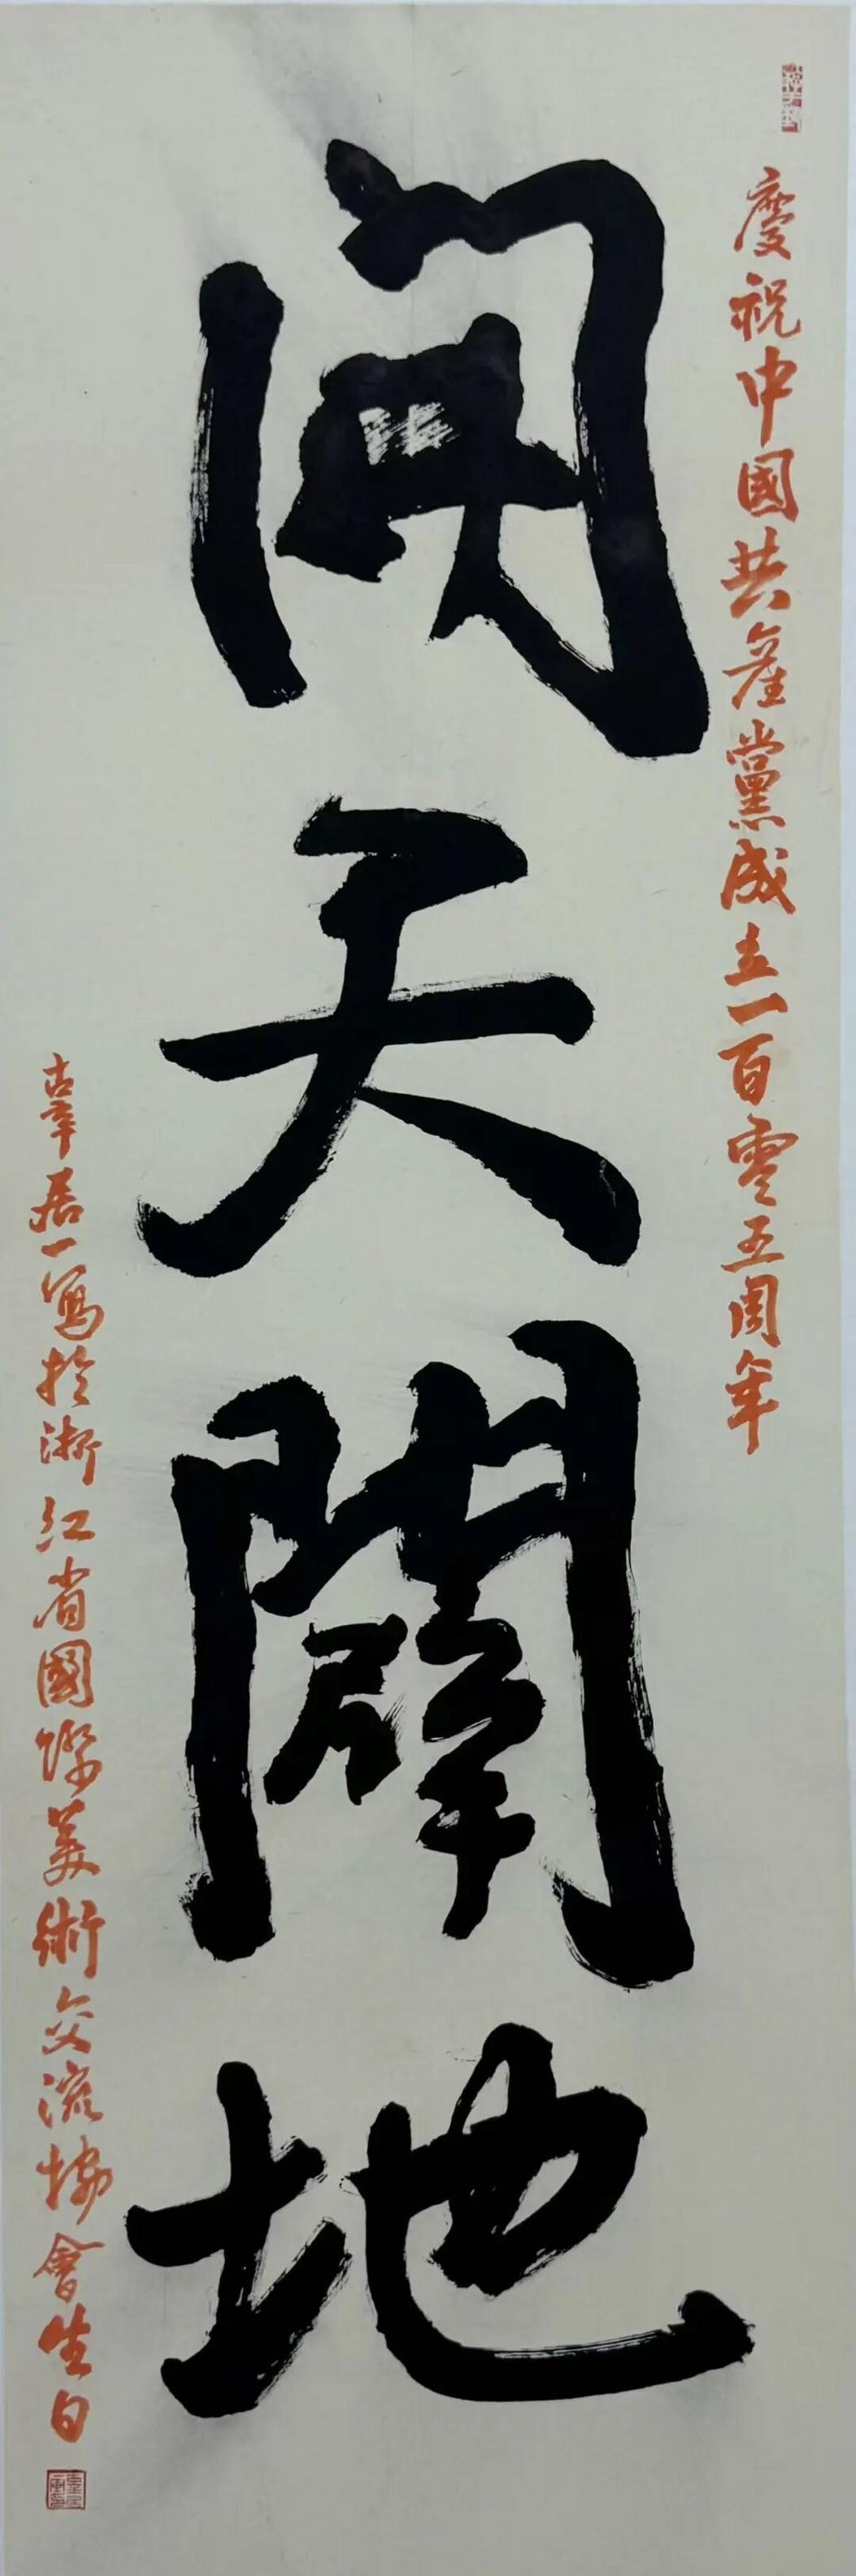 慶祝中國共產黨成立一百零五周年
開天闢地
古辜居一寫於浙江省國際美術交流協會生白